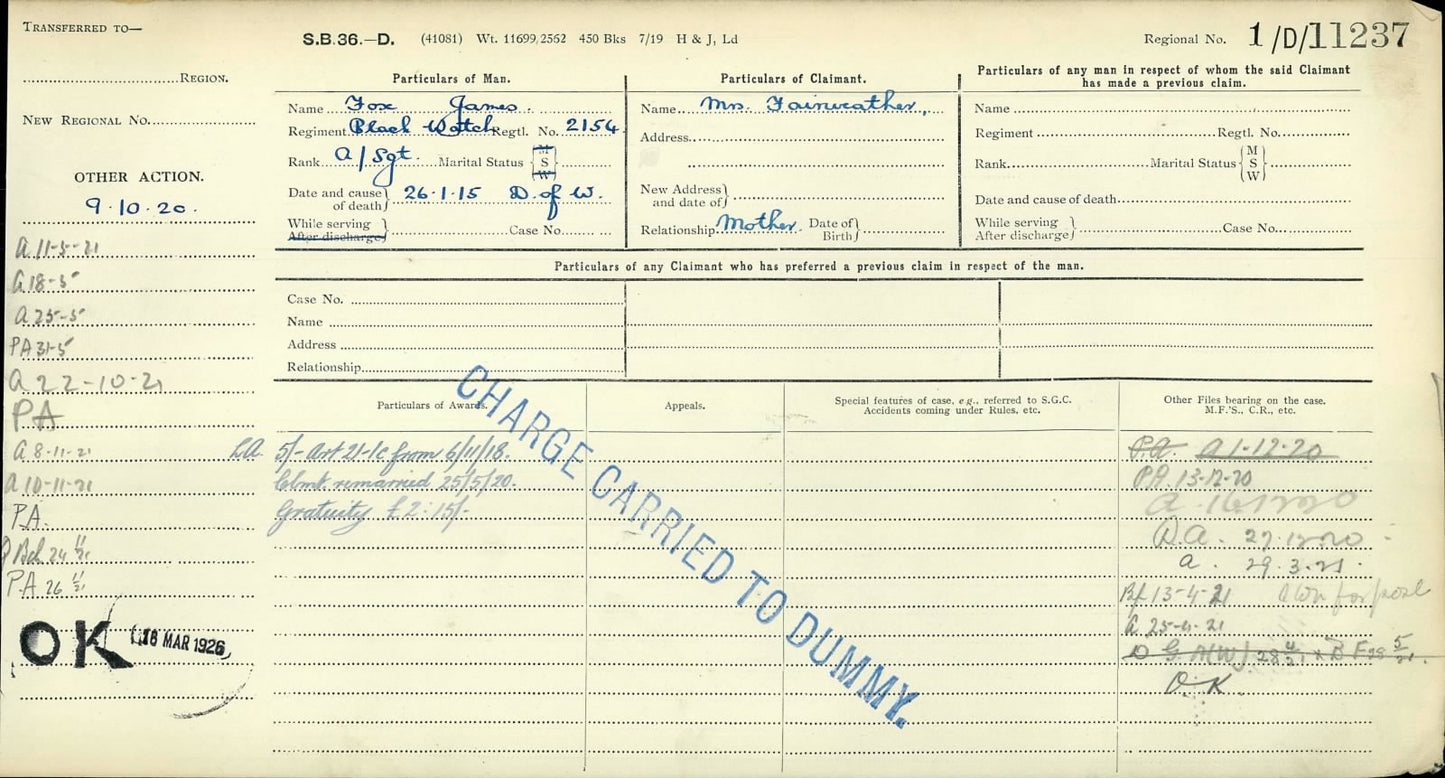 TRANSFERRED TO—
S.B.36.—D. (41081) Wt. 11699,2562 450 Bks 7/19 H & J, Ld
Regional No. 1/D/11237
REGION.
NEW REGIONAL No.
OTHER ACTION.
9.10.20.
A 11-5-21
A 18-5
A 25-5
PA 31-5
A 22-10-21
PA
A 8-11-21
A 10-11-21
PA.
PA 26 11/21
OK 18 MAR 1926
Particulars of Man.
Name Fox James.
Regiment Black Watch Regtl. No. 2154
Rank A/Sgt. Marital Status { M S W }
Date and cause of death } 26.1.15 D. of W.
While serving
After discharge } Case No.
Particulars of Claimant.
Name Mrs. Fairweather,
Address
New Address and date of }
Relationship Mother Date of Birth }
Particulars of any man in respect of whom the said Claimant
has made a previous claim.
Name
Regiment Regtl. No.
Rank Marital Status { M S W }
Date and cause of death
While serving
After discharge } Case No.
Particulars of any Claimant who has preferred a previous claim in respect of the man.
Case No.
Name
Address
Relationship
Particulars of Awards.
5/- Art 21-1c from 6/11/18.
Clmt remarried 25/5/20.
Gratuity £2:15/-
Appeals.
Special features of case, e.g., referred to S.G.C.
Accidents coming under Rules, etc.
Other Files bearing on the case.
M.F.'S., C.R., etc.
P.A. A 1-12-20
PA. 13-12-20
A. 29.3.21.
Bf 13-4-21
O.K
CHARGE CARRIED TO DUMMY.